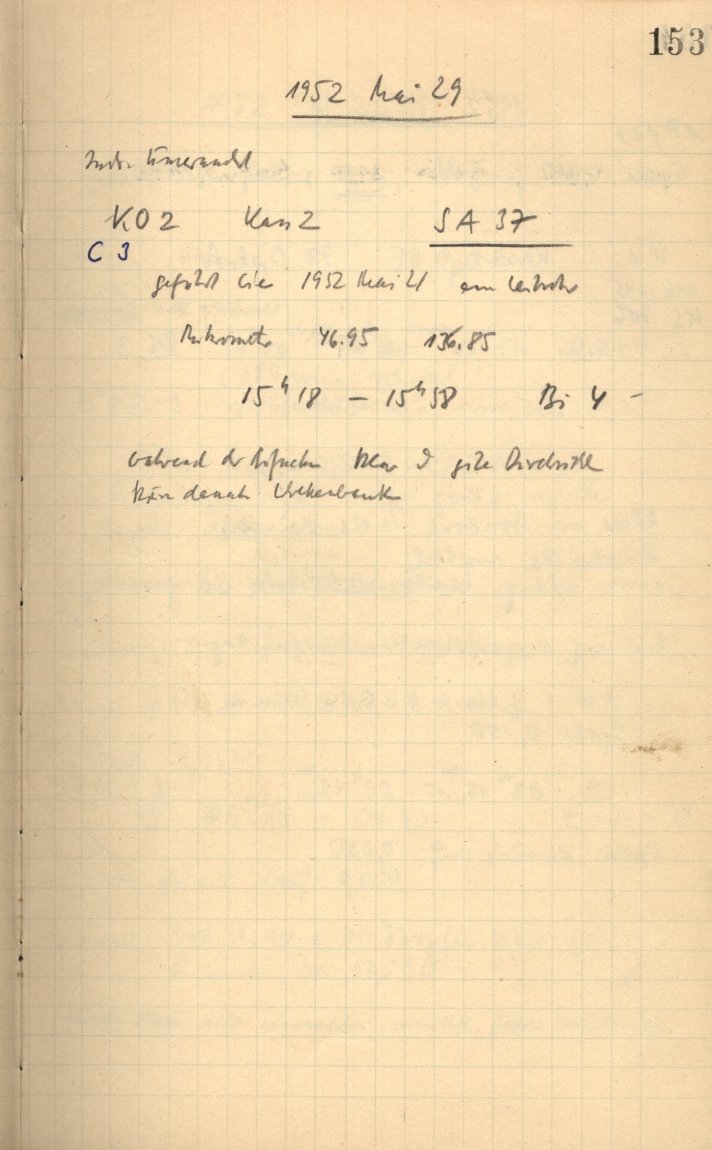 153
1952 Mai 29
Index unverändert
KO2 Kass 2 SA 37
C 3
geführt wie 1952 Mai 21 am Leitrohr
Mikrometer 46.95 136.85
15h 18 – 15h 58 Bi 4 –
während der Aufnahme klar & gute Durchsicht
kurz danach Wolkenbank